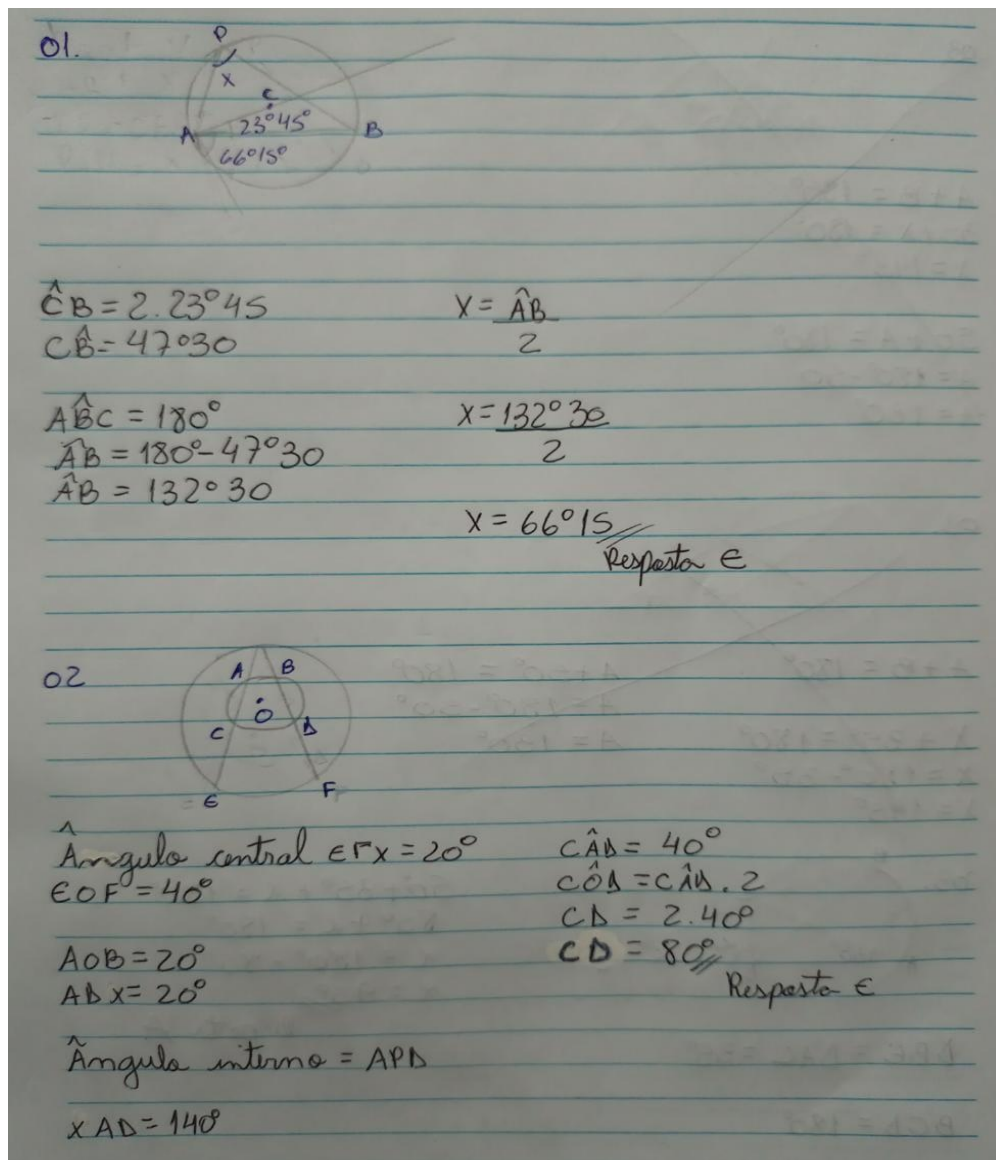 01.
P
X
C
A 23°45° B
66°15°
ĈB = 2.23°45
CB̂ = 47°30
AB̂C = 180°
ÂB = 180° - 47°30
ÂB = 132°30
X = ÂB
2
X = 132°30
2
X = 66°15
Resposta E
02
A B
O
C D
E F
Ângulo central EFX = 20°
EOF = 40°
AOB = 20°
ABX = 20°
Ângulo interno = APD
XAD = 140°
CÂD = 40°
CÔD = CÂD . 2
CD = 2.40°
CD = 80°
Resposta E